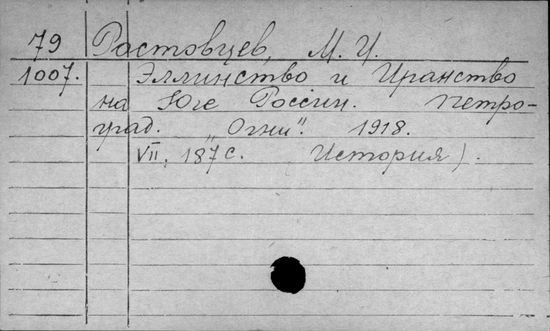 79 Ростовцев, М. И.
1007. Эллинство и Иранство
на Юге России. Петро-
град. „Огни". 1918.
VII, 187 с. История).